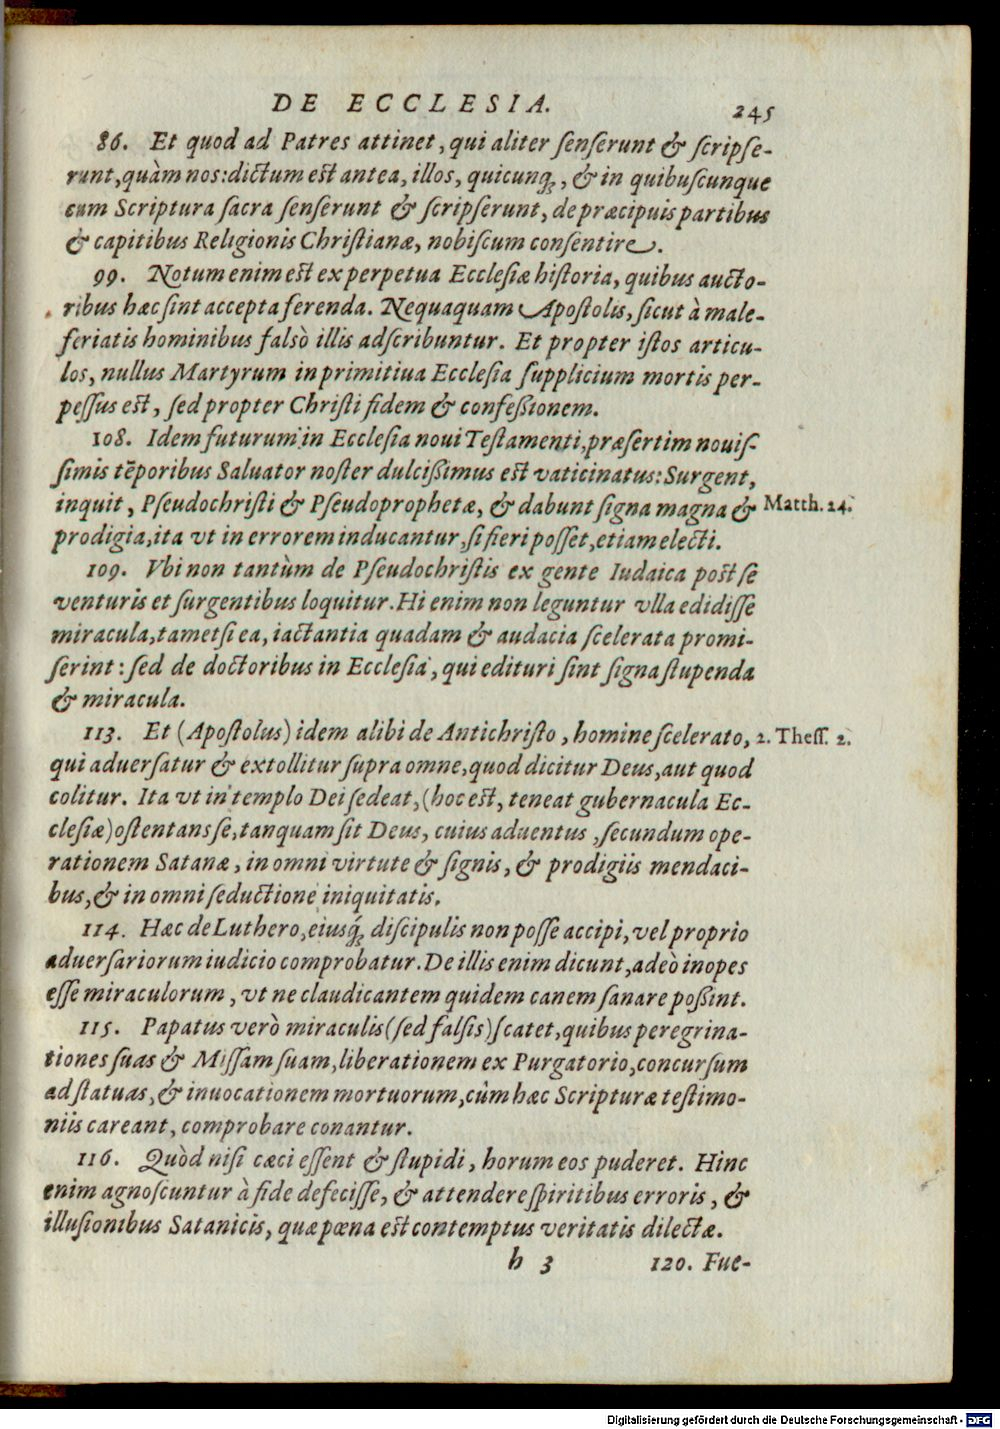 DE ECCLESIA. 245
86. Et quod ad Patres attinet, qui aliter ſenſerunt & ſcripſe-
runt, quàm nos: dictum est antea, illos, quicunq́;, & in quibuſcunque
cum Scriptura ſacra ſenſerunt & ſcripſerunt, de præcipuis partibus
& capitibus Religionis Chriſtianæ, nobiſcum conſentire.
99. Notum enim est ex perpetua Eccleſiæ hiſtoria, quibus aucto-
ribus hæc ſint accepta ferenda. Nequaquam Apoſtolis, ſicut à male-
feriatis hominibus falsò illis adſcribuntur. Et propter iſtos articu-
los, nullus Martyrum in primitiua Eccleſia ſupplicium mortis per-
peſſus est, ſed propter Chriſti fidem & confeßionem.
108. Idem futurum in Eccleſia noui Teſtamenti, præſertim nouiſ-
ſimis tẽporibus Saluator noſter dulcißimus est vaticinatus: Surgent,
inquit, Pſeudochriſti & Pſeudoprophetæ, & dabunt ſigna magna & Matth. 24.
prodigia, ita vt in errorem inducantur, ſi fieri poſſet, etiam electi.
109. Vbi non tantùm de Pſeudochriſtis ex gente Iudaica post ſe
venturis et ſurgentibus loquitur. Hi enim non leguntur vlla edidiſſe
miracula, tametſi ea, iactantia quadam & audacia ſcelerata promi-
ſerint: ſed de doctoribus in Eccleſia, qui edituri ſint ſigna ſtupenda
& miracula.
113. Et (Apoſtolus) idem alibi de Antichriſto, homine ſcelerato, 2. Theſſ. 2.
qui aduerſatur & extollitur ſupra omne, quod dicitur Deus, aut quod
colitur. Ita vt in templo Dei ſedeat, (hoc est, teneat gubernacula Ec-
cleſiæ) oſtentans ſe, tanquam ſit Deus, cuius aduentus, ſecundum ope-
rationem Satanæ, in omni virtute & ſignis, & prodigiis mendaci-
bus, & in omni ſeductione iniquitatis.
114. Hæc de Luthero, eiusq́; diſcipulis non poſſe accipi, vel proprio
aduerſariorum iudicio comprobatur. De illis enim dicunt, adeò inopes
eſſe miraculorum, vt ne claudicantem quidem canem ſanare poßint.
115. Papatus verò miraculis (ſed falſis) ſcatet, quibus peregrina-
tiones ſuas & Miſſam ſuam, liberationem ex Purgatorio, concurſum
ad ſtatuas, & inuocationem mortuorum, cùm hæc Scripturæ teſtimo-
niis careant, comprobare conantur.
116. Quòd niſi cæci eſſent & ſtupidi, horum eos puderet. Hinc
enim agnoſcuntur à fide defeciſſe, & attendere ſpiritibus erroris, &
illuſionibus Satanicis, quæ pœna est contemptus veritatis dilectæ.
h 3 120. Fue-
Digitalisierung gefördert durch die Deutsche Forschungsgemeinschaft - DFG